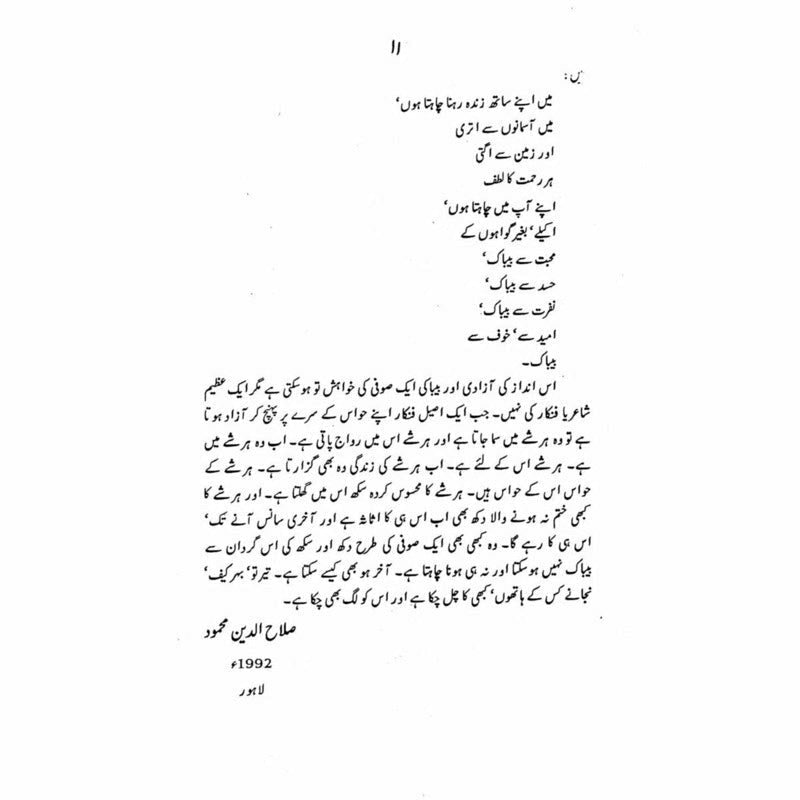 ۱۱
ہیں:
میں اپنے ساتھ زندہ رہنا چاہتا ہوں،
میں آسمانوں سے اتری
اور زمین سے اگتی
ہر رحمت کا لطف
اپنے آپ میں چاہتا ہوں،
اکیلے، بغیر گواہوں کے
محبت سے بیباک،
حسد سے بیباک،
نفرت سے بیباک،
امید سے، خوف سے
بیباک۔
اس انداز کی آزادی اور بیباکی ایک صوفی کی خواہش تو ہو سکتی ہے مگر ایک عظیم
شاعر یا فنکار کی نہیں۔ جب ایک اصیل فنکار اپنے حواس کے سرے پر پہنچ کر آزاد ہوتا
ہے تو وہ ہر شے میں سما جاتا ہے اور ہر شے اس میں رواج پاتی ہے۔ اب وہ ہر شے میں
ہے۔ ہر شے اس کے لئے ہے۔ اب ہر شے کی زندگی وہ بھی گزارتا ہے۔ ہر شے کے
حواس اس کے حواس ہیں۔ ہر شے کا محسوس کردہ سکھ اس میں گھلتا ہے۔ اور ہر شے کا
کبھی ختم نہ ہونے والا دکھ بھی اب اس ہی کا اثاثہ ہے اور آخری سانس آنے تک،
اس ہی کا رہے گا۔ وہ کبھی بھی ایک صوفی کی طرح دکھ اور سکھ کی اس گردان سے
بیباک نہیں ہو سکتا اور نہ ہی ہونا چاہتا ہے۔ آخر ہو بھی کیسے سکتا ہے۔ تیر تو، بہر کیف،
نجانے کس کے ہاتھوں، کبھی کا چل چکا ہے اور اس کو لگ بھی چکا ہے۔
صلاح الدین محمود
1992ء
لاہور